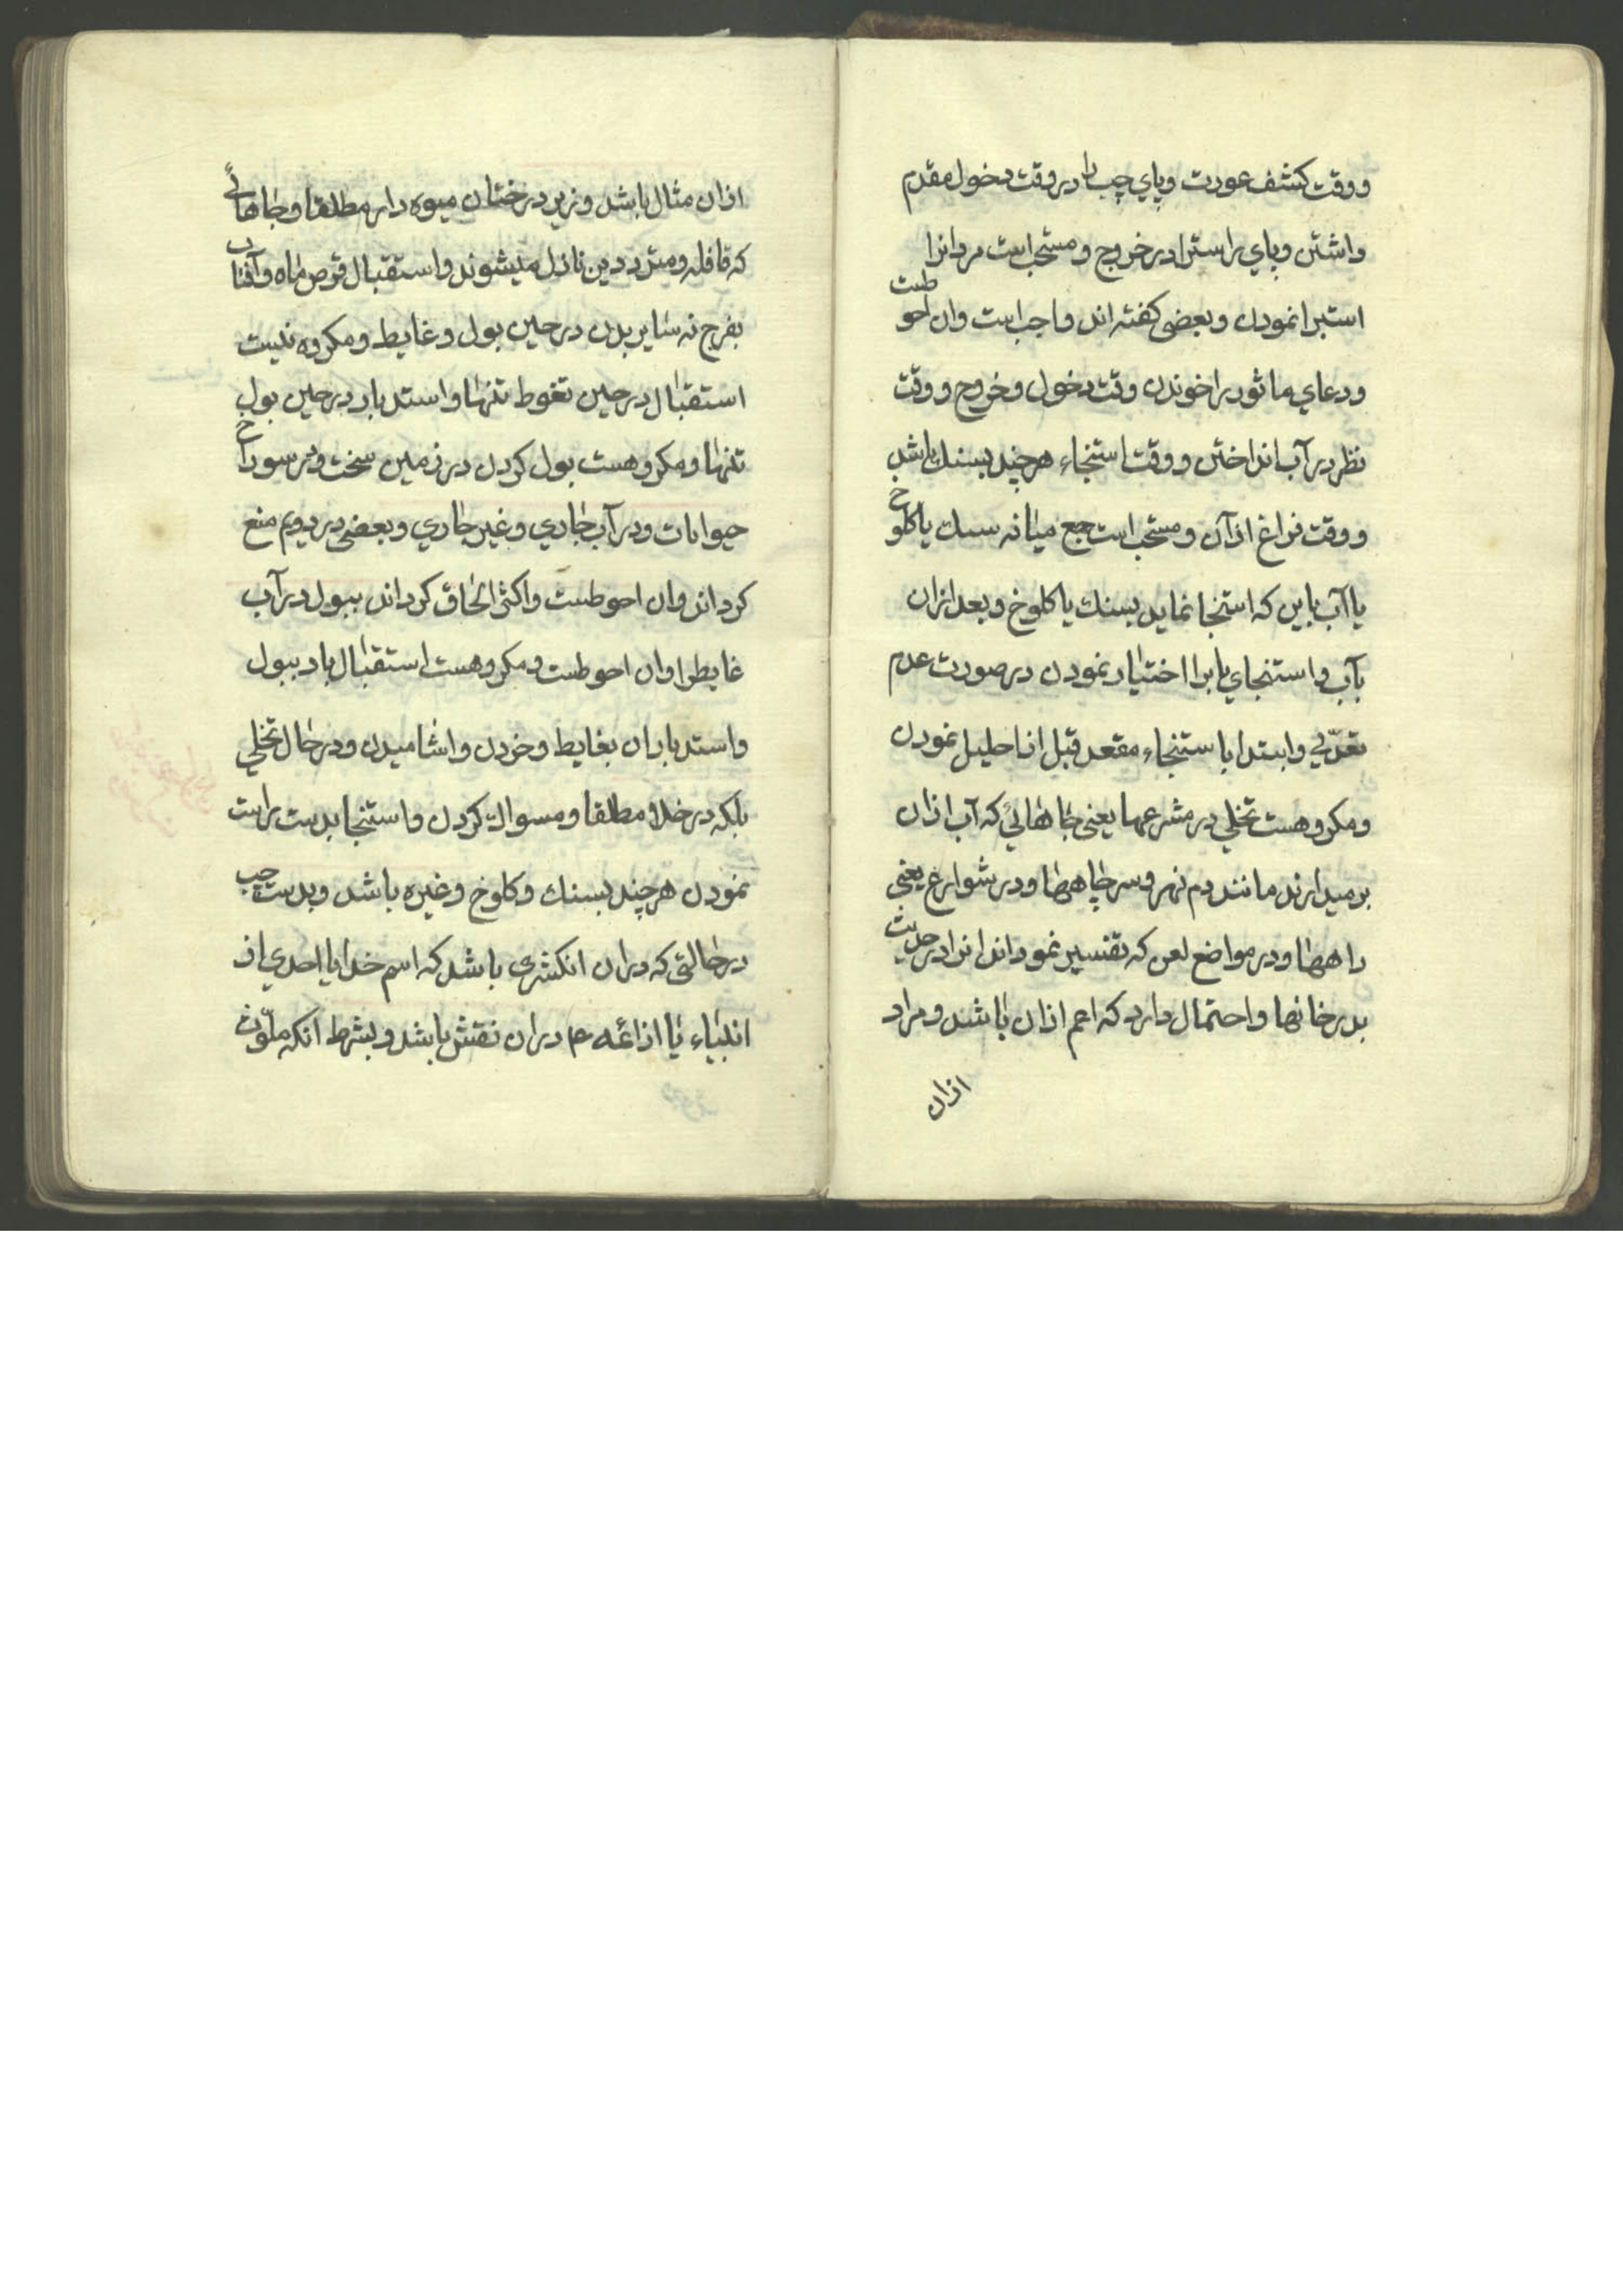 ووقت کشف عورت وپاي چپ را در وقت دخول مقدم
داشتن وپاي راسترا در خروج ومستحب است مردانرا
استبرا نمودن وبعضی کفته اند واجب است وان احوطست
ودعاي ماثور را خوندن وقت دخول وخروج ووقت
نظر در آب انداختن ووقت استنجاء هرچند بسنك باشد
ووقت فراغ ازآن ومستحب است جمع میانه سنك یا کلوخ
یا آب باین که استنجا نماید بسنك یا کلوخ وبعد ازان
بآب واستنجاي بابرا اختیار نمودن در صورت عدم
تعدّي وابتدا باستنجاء مقعد قبل از احلیل نمودن
ومکروهست تخلي در مشرعها یعنی جاهائي که آب ازان
برمیدارند مانند دم نهر وسر چاهها ودر شوارع یعنی
راهها ودر مواضع لعن که تفسیر نموداند انرا در حدیث
بدر خانها واحتمال دارد که اعم ازان باشد ومراد
ازان
ازان مثال باشد وزیر درختان میوه دار مطلقا وجاهائي
که قافله ومترددین نازل میشوند واستقبال قرص ماه وآفتاب
بفرج نه سایر بدن در حین بول وغایط ومکروه نیست
استقبال در حین تغوط تنها واستدبار در حین بول
تنها ومکروهست بول کردن در زمین سخت ودر سوراخ
حیوانات ودر آب جاري وغیر جاري وبعضی در دویم منع
کرداند وان احوطست واکثر الحاق کرداند ببول در آب
غایطرا وان احوطست ومکروهست استقبال باد ببول
واستدبار ان بغایط وخردن واشامیدن ودر حال تخلي
بلکه در خلا مطلقا ومسواك کردن واستنجا بدست راست
نمودن هرچند بسنك وکلوخ وغیره باشد وبدست چپ
در حالتی که دران انکشتری باشد که اسم خدا یا احدي از
انبیاء یا ازائمه ع دران نقش باشد وبشرط انکه ملوّث